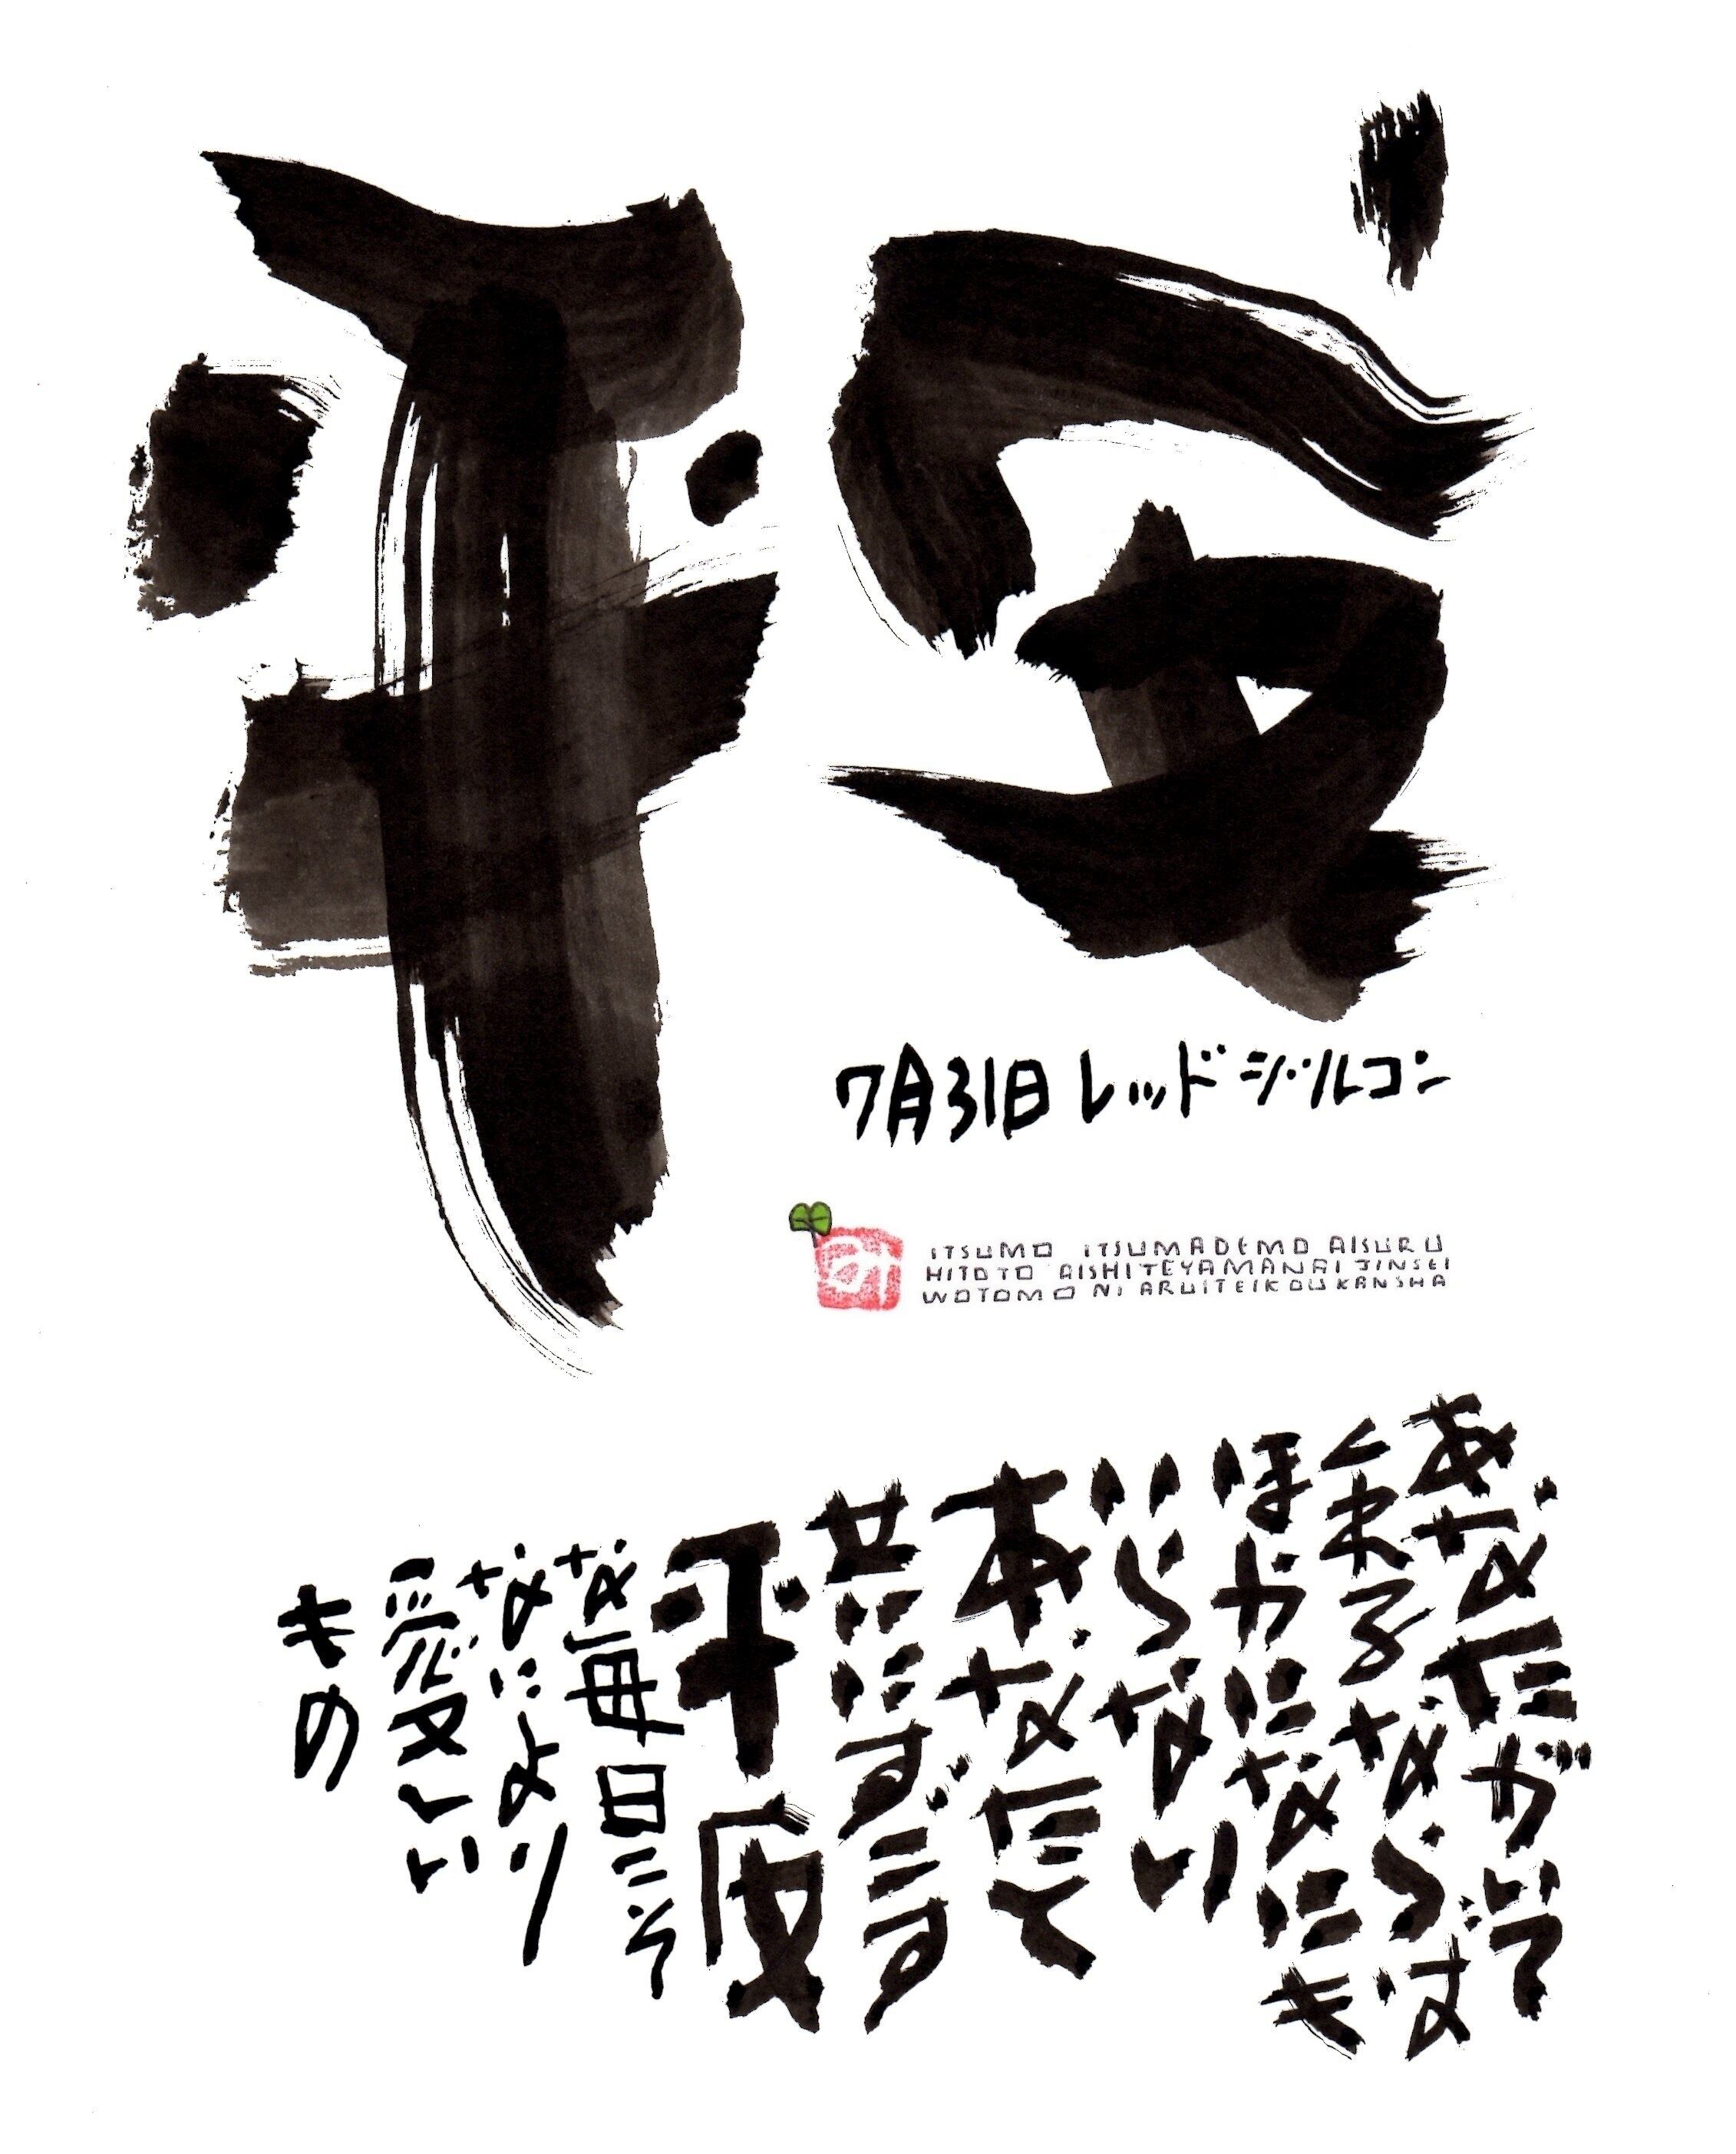 平安
7月31日 レッドジルコン
ITSUMO ITSUMADEMO AISURU
HITOTO AISHITEYAMANAI JINSEI
WOTOMO NI ARUITEIKOU KANSHA
あなたがいて
くれるならば
ほかになにも
いらない
あなたと
共にすごす
平安
な毎日こそ
なにより
愛しい
もの